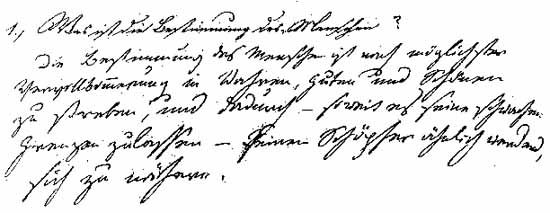 1., Was ist die Bestimmung des Menschen?
Die Bestimmung des Menschen ist nach möglichster
Vervollkommnerung in Wahren, Guten und Schönen
zu streben, und dadurch – soweit es seine schwachen
Grenzen zulassen – seinem Schöpfer ähnlich werdend,
sich zu nähern.